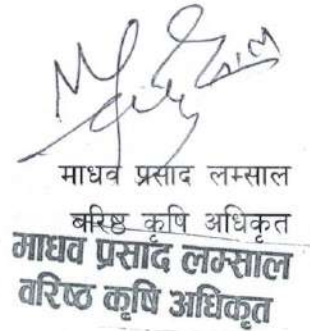 माधव प्रसाद लम्साल
बरिष्ठ कृषि अधिकृत
माधव प्रसाद लम्साल
वरिष्ठ कृषि अधिकृत